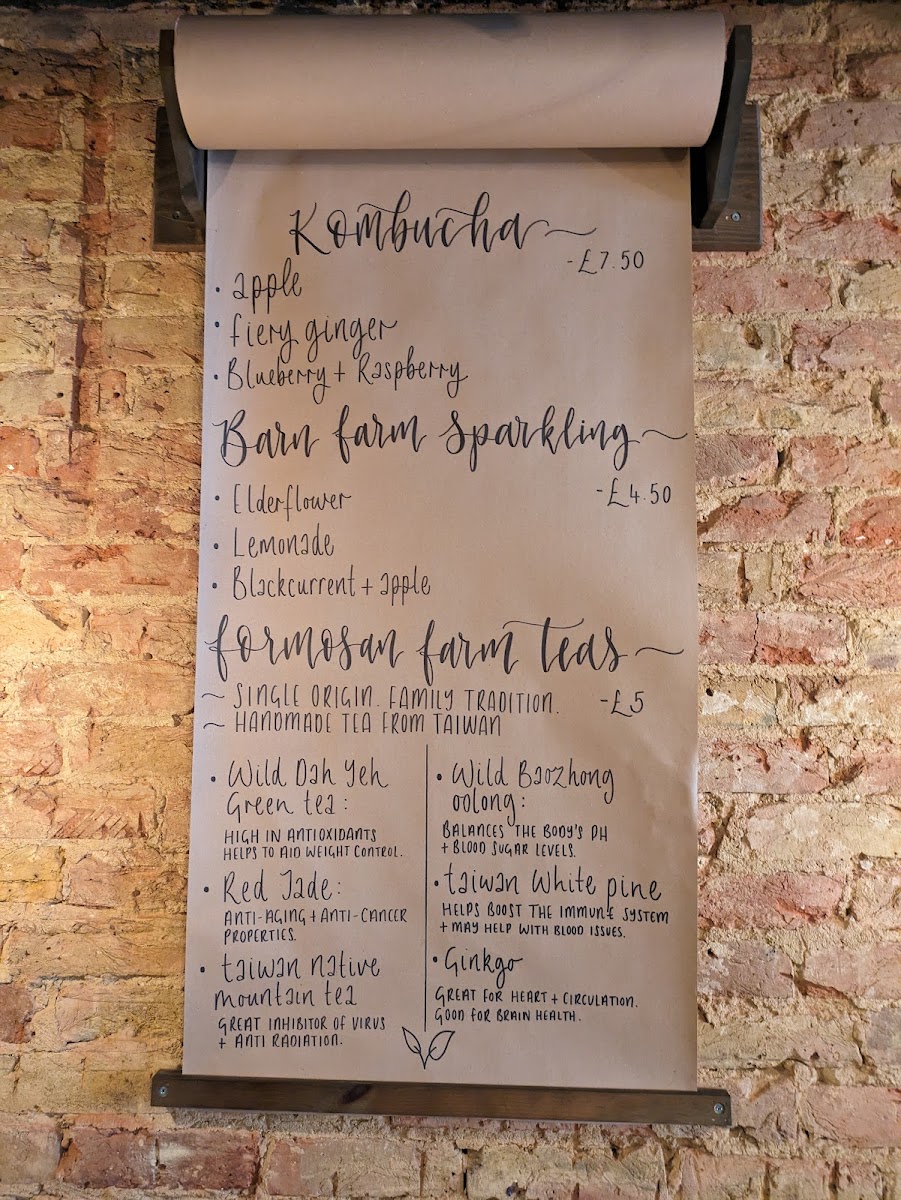 Kombucha
-£7.50
• apple
• fiery ginger
• Blueberry + Raspberry
Barn farm sparkling
-£4.50
• Elderflower
• Lemonade
• Blackcurrent + apple
formosan farm teas
~ SINGLE ORIGIN. FAMILY TRADITION. -£5
~ HANDMADE TEA FROM TAIWAN
• Wild Dah Yeh
Green tea:
HIGH IN ANTIOXIDANTS
HELPS TO AID WEIGHT CONTROL.
• Red Jade:
ANTI-AGING + ANTI-CANCER
PROPERTIES.
• taiwan native
mountain tea
GREAT INHIBITOR OF VIRUS
+ ANTI RADIATION.
• Wild Baozhong
oolong:
BALANCES THE BODY'S PH
+ BLOOD SUGAR LEVELS.
• taiwan White pine
HELPS BOOST THE IMMUNE SYSTEM
+ MAY HELP WITH BLOOD ISSUES.
• Ginkgo
GREAT FOR HEART + CIRCULATION.
GOOD FOR BRAIN HEALTH.